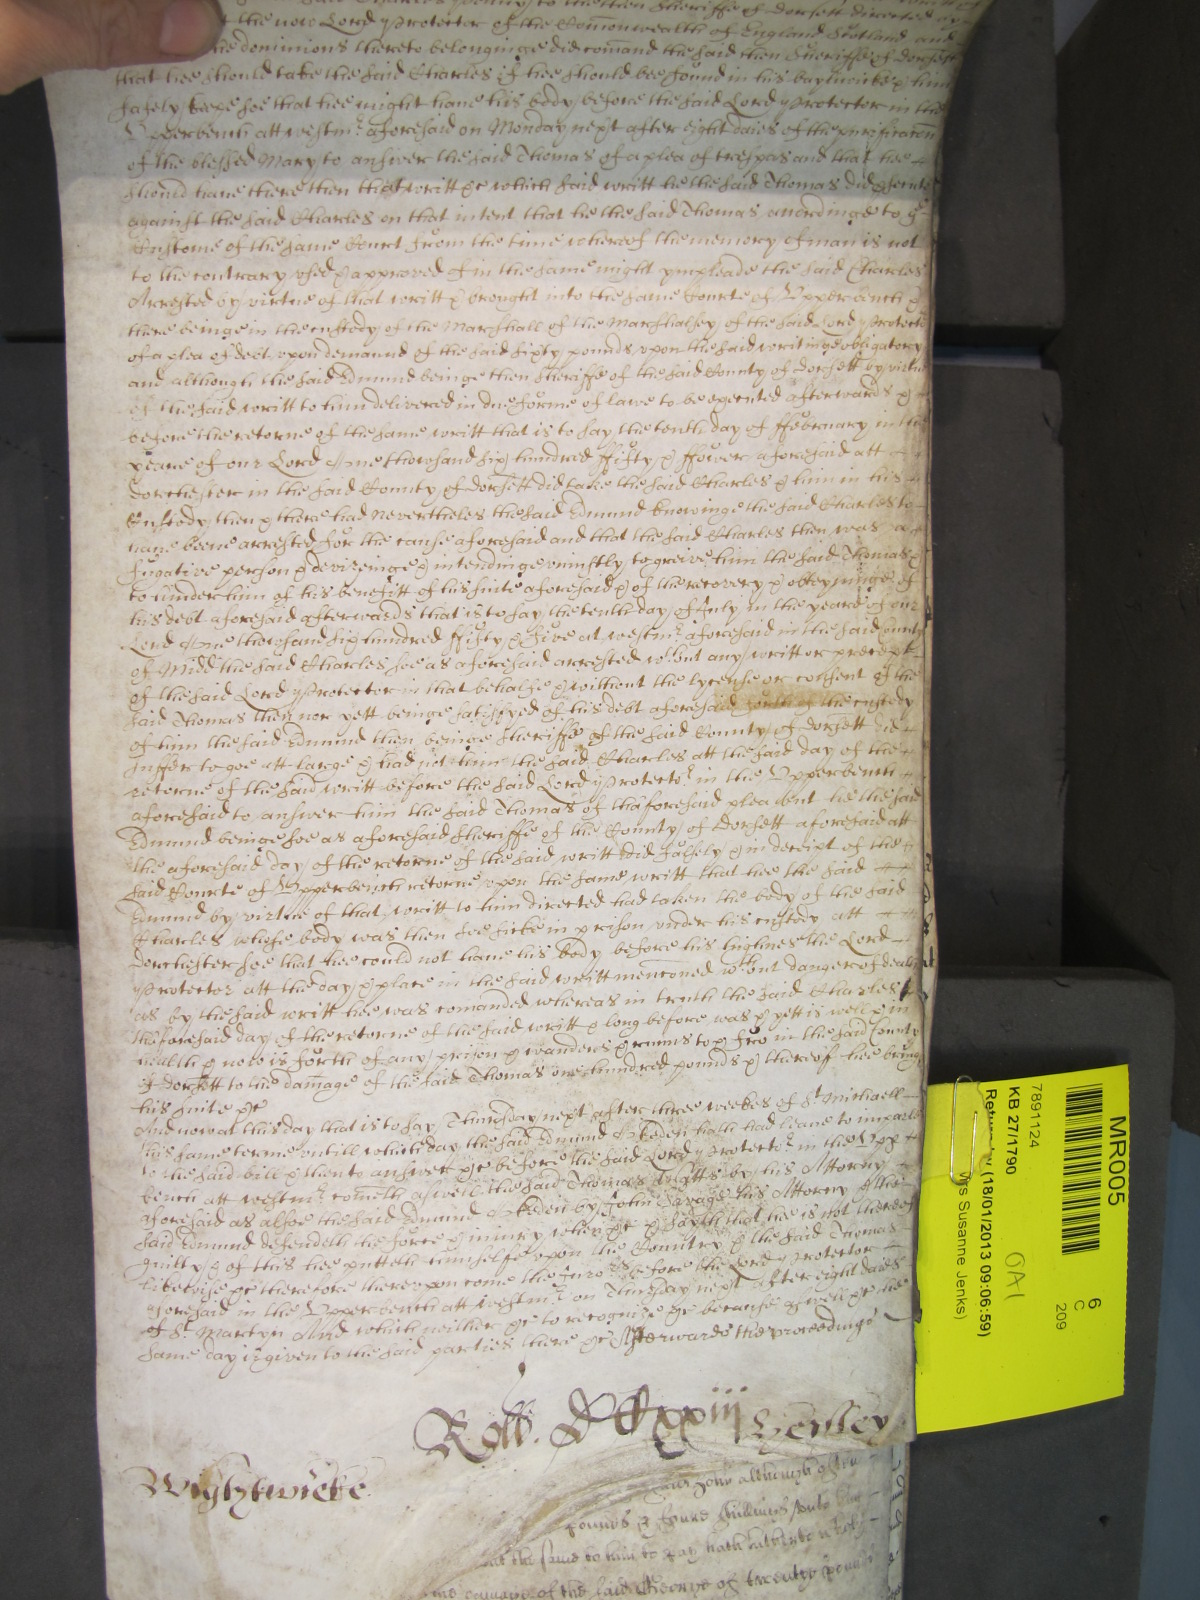 the now Lord Protector of the Comonwealth of England Scotland and
the dominions thereto belonginge did comand the said then Sheriffe of Dorsett
that hee should take the said Charles if hee should bee found in his baylywicke & him
safely keepe soe that hee might have his body before the said Lord Protector in the
Upperbench att westmr aforesaid on Monday next after eight daies of the purificacon
of the blessed Mary to answer the said Thomas of a plea of trespas and that hee
should have there then that writt &c which said writt he the said Thomas did
against the said Charles on that intent that he the said Thomas accordinge to ye
Custome of the same Court from the time whereof the memory of man is not
to the contrary used & approved of in the same might ympleade the said Charles
Arrested by virtue of that writt & brought into the same Courte of Upperbench &
there beinge in the custody of the Marshall of the Marshalsey of the said Lord Protector
of a plea of debt upon demaund of the said sixty pounds upon the said writinge obligatory
and although the said Edmund beinge then Sheriffe of the said County of Dorsett by virtue
of the said writt to him delivered in due forme of lawe to be executed afterwards &
before the retorne of the same writt that is to say the tenth day of ffebruary in the
yeare of our Lord one thowsand six hundred ffifty & ffower aforesaid att
Dorchester in the said County of Dorsett did take the said Charles & him in his
Custody then & there had Nevertheles the said Edmund knowinge the said Charles to
have beene arrested for the cause aforesaid and that the said Charles then was a
fugative person & deviseinge & intendinge uniustly to greive him the said Thomas &
to hinder him of his benefitt of his suite aforesaid & of the recovery & obteyninge of
his debt aforesaid afterwards that is to say the tenth day of July in the yeare of our
Lord one thowsand six hundred ffifty & five at westmr aforesaid in the said County
of Midd the said Charles soe as aforesaid arrested wthout any writt or precept
of the said Lord Protector in that behalfe & without the lycense or consent of the
said Thomas then nor yett beinge satisfyed of his debt aforesaid out of the custody
of him the said Edmund then beinge Sheriffe of the said County of Dorsett did
suffer to goe att large & had not him the said Charles att the said day of the
retorne of the said writt before the said Lord Protector in the Upperbench
aforesaid to answer him the said Thomas of thaforesaid plea but he the said
Edmund beinge soe as aforesaid Sheriffe of the County of Dorsett aforesaid att
the aforesaid day of the retorne of the said writt did falsely & in deceipt of the
said Courte of Upperbench retorne upon the same writt that hee the said
Edmund by virtue of that writt to him directed had taken the body of the said
Charles whose body was then soe sicke in prison under his custody att
Dorchester soe that hee could not have his body before his highnes the Lord
Protector att the day & place in the said writt menconed wthout danger of death
as by the said writt hee was comanded whereas in truth the said Charles
thaforesaid day of the retorne of the said writt & long before was & yett is well & in
health & now is forth of any prison & wanders & runns to & fro in the said County
of Dorsett to the damage of the said Thomas one hundred pounds & thereof hee bringe
his suite &c
And now at this day that is to say Thursday next after three weekes of St Michaell
this same terme untill which day the said Edmund had leave to imparle
to the said bill & then to answer &c before the said Lord Protector in the Upp
bench att westmr cometh aswell the said Thomas by his Attorny
aforesaid as alsoe the said Edmund by John Savage his Attorny And the
said Edmund defendeth the force & iniury when &c & sayth that hee is not thereof
guilty & of this hee putteth himselfe upon the Country & the said Thomas
likewise &c therefore thereupon come the Jurors before the Lord Protector
aforesaid in the Upperbench att westmr on Tuesday next after eight daies
of St Martyn And which neither &c to recognize &c because aswell &c the
same day is given to the said parties there &c Afterwards the proceedings
Henley
Wightwicke
although often
pounds & foure shillings
the same to him to pay hath
damage of the said George of twenty pounds
MR005
6
C
209
7891124
KB 27/1790
(18/01/2013 09:06:59)
Susanne Jenks)